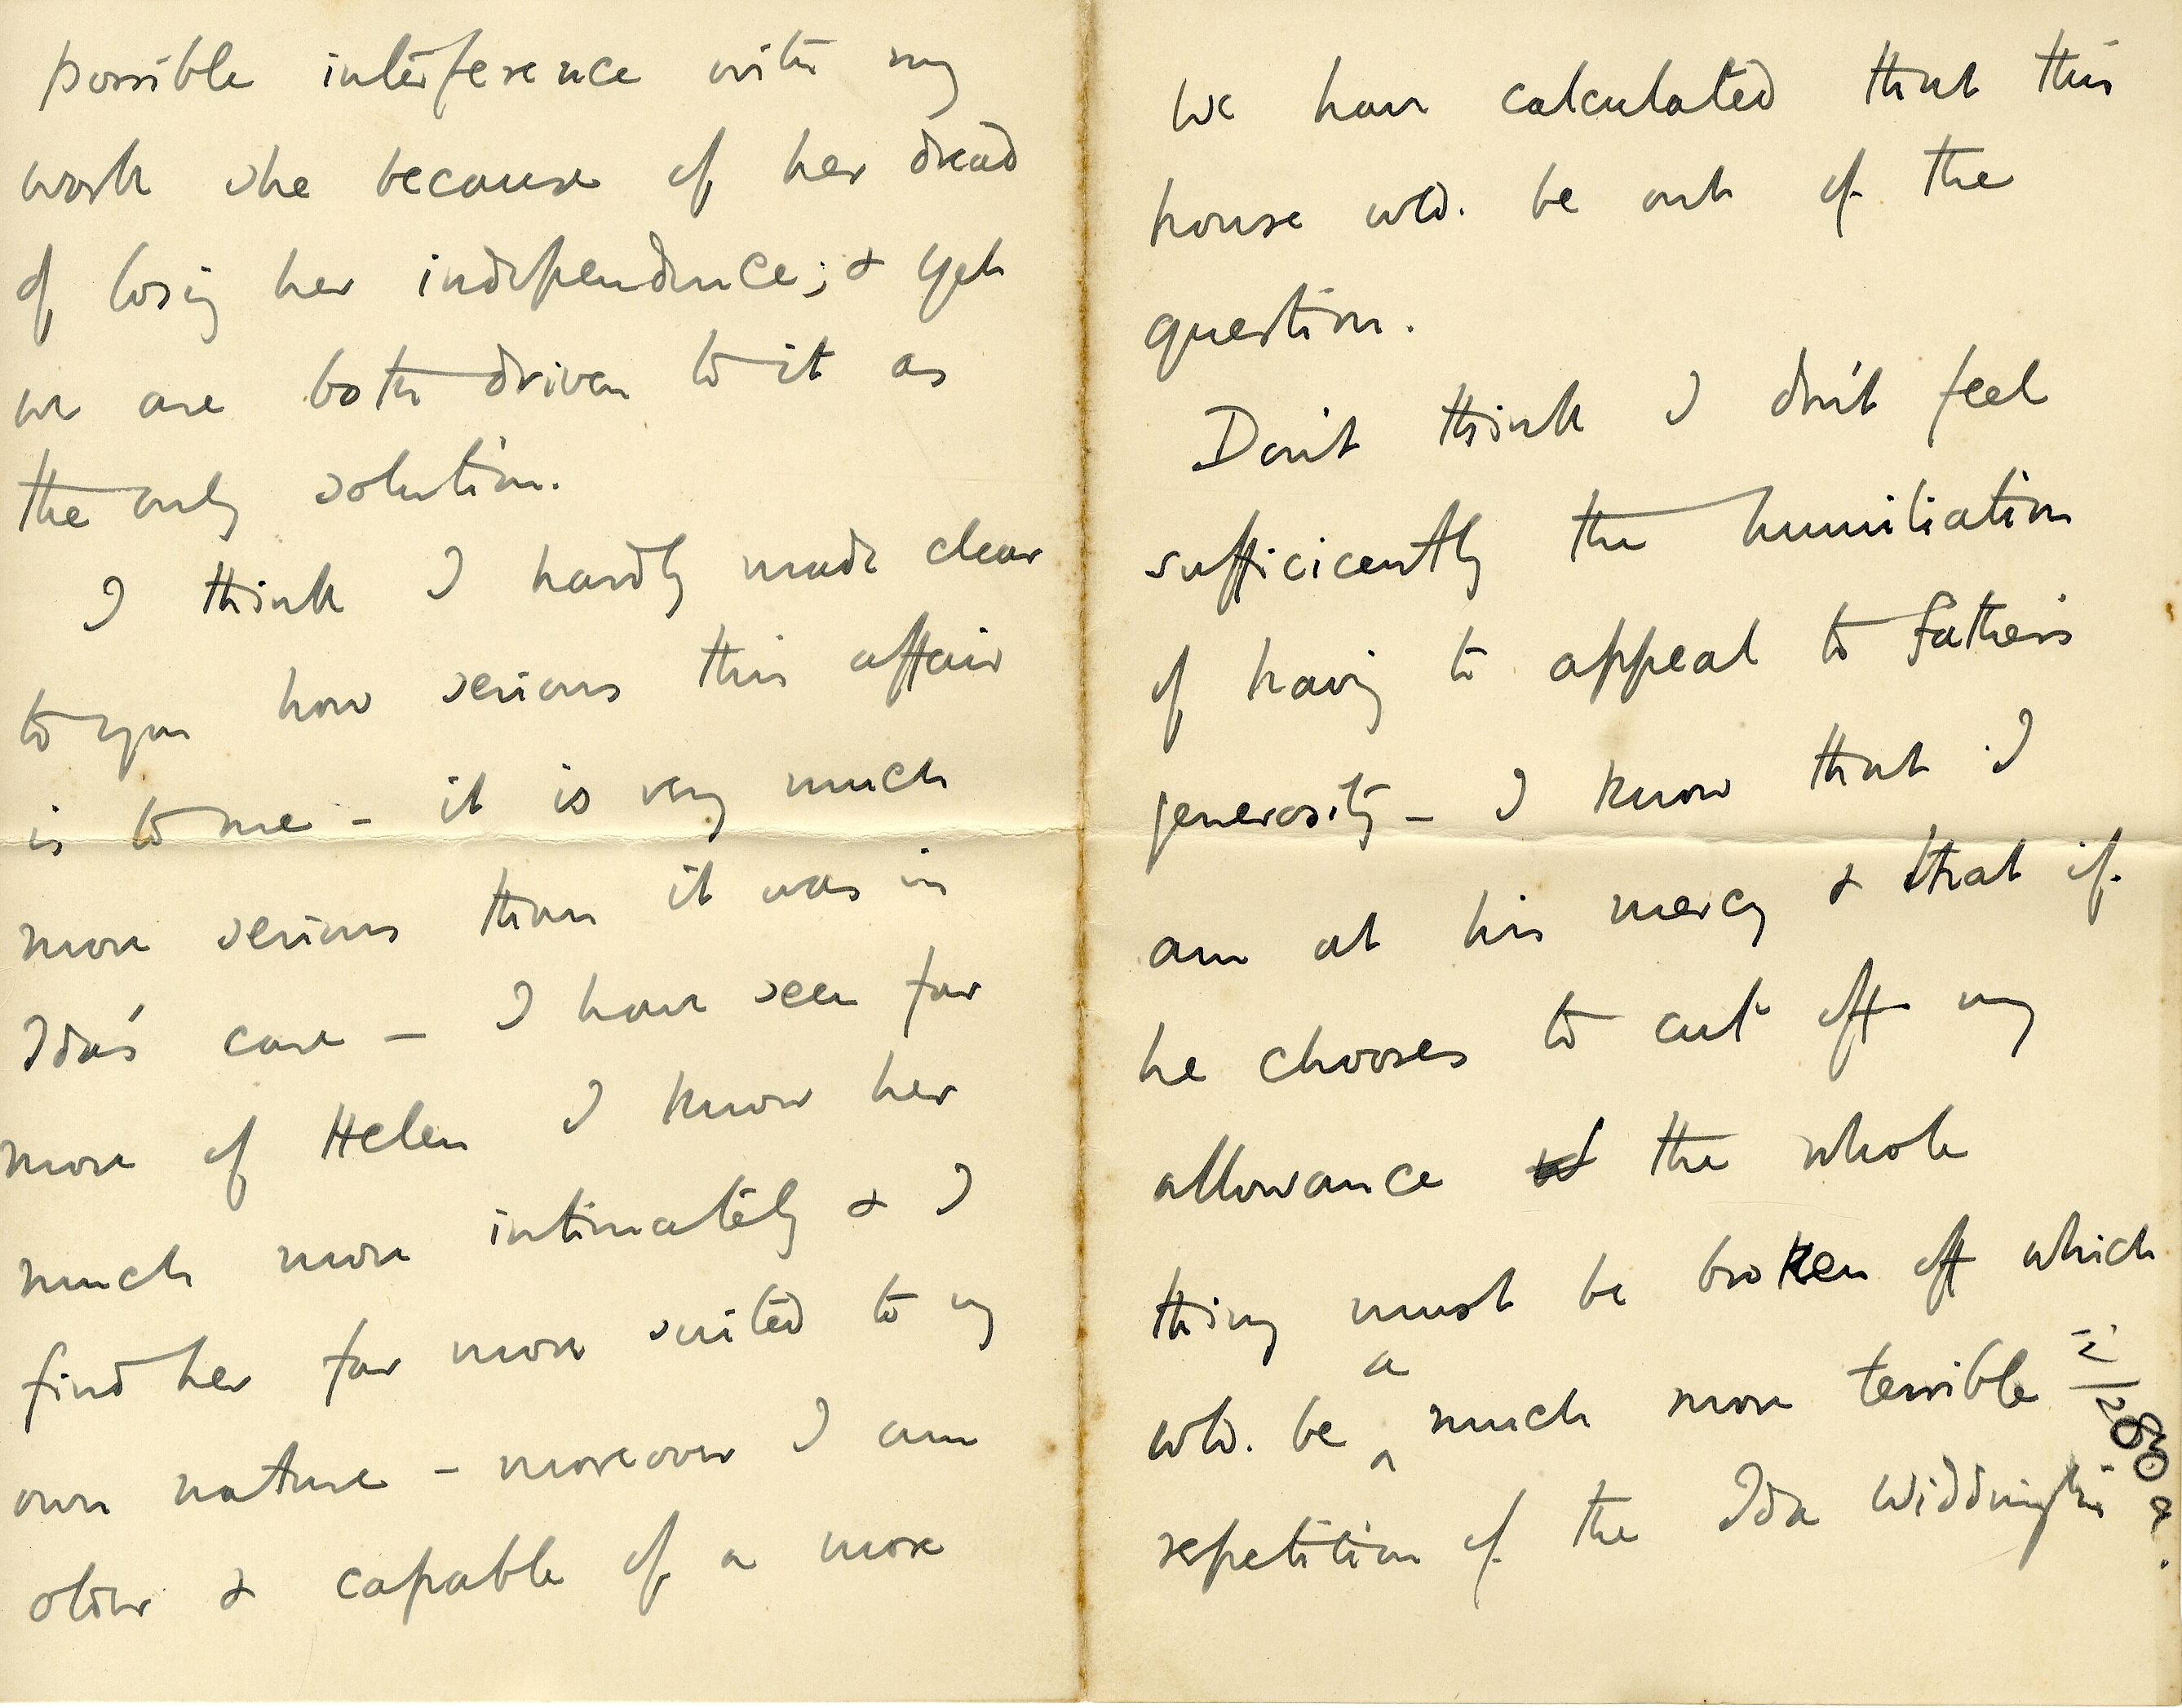 possible interference with my
work she because of her dread
of losing her independence; & yet
we are both driven to it as
the only solution.
I think I hardly made clear
to you how serious this affair
is to me – it is very much
more serious than it was in
Ida's case – I have seen far
more of Helen I know her
much more intimately & I
find her far more suited to my
own nature – moreover I am
older & capable of a more
we have calculated that this
house wld. be out of the
question.
Don't think I don't feel
sufficicently the humiliation
of having to appeal to Father's
generosity – I know that I
am at his mercy & that if
he chooses to cut off my
allowance the whole
thing must be broken off which
wld. be a much more terrible
repetition of the Ida